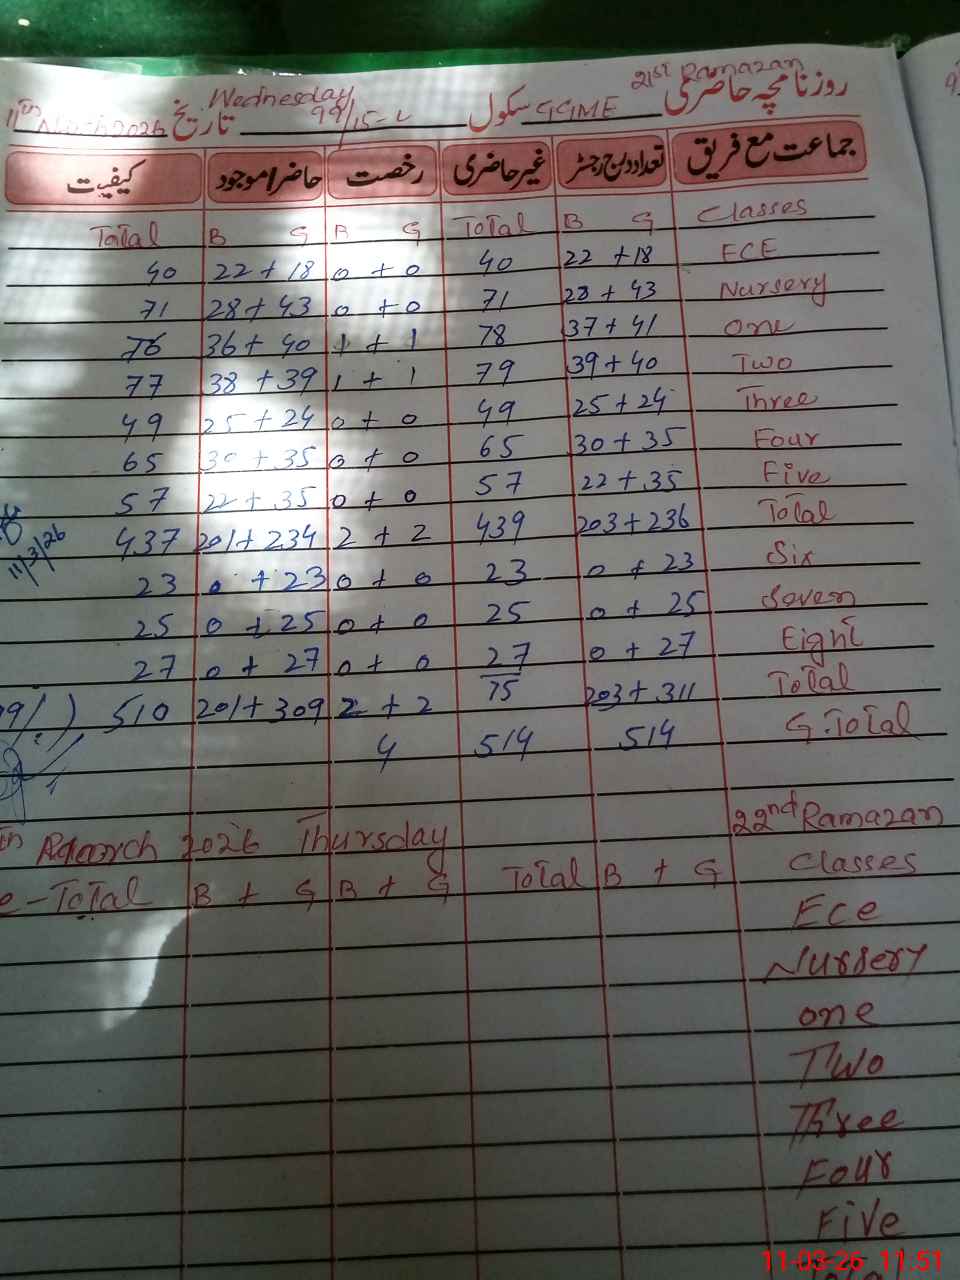 21st Ramazan
روزنامچہ حاضری سکول GGME 99/15-L تاریخ Wednesday 11th March 2026
جماعت مع فریق تعداد درج رجسٹر غیر حاضری رخصت حاضر/موجود کیفیت
Total B G B G Total B G Classes
40 22+18 0+0 40 22+18 ECE
71 28+43 0+0 71 28+43 Nursery
76 36+40 1+1 78 37+41 One
77 38+39 1+1 79 39+40 Two
49 25+24 0+0 49 25+24 Three
65 30+35 0+0 65 30+35 Four
57 22+35 0+0 57 22+35 Five
437 201+234 2+2 439 203+236 Total
11/3/26
23 0+23 0+0 23 0+23 Six
25 0+25 0+0 25 0+25 Seven
27 0+27 0+0 27 0+27 Eight
510 201+309 2+2 75 203+311 Total
4 514 514 G.Total
March 2026 Thursday 22nd Ramazan
Total B + G B + G Total B + G Classes
Ece
Nursery
one
Two
Three
Four
Five
11-03-26 11:51